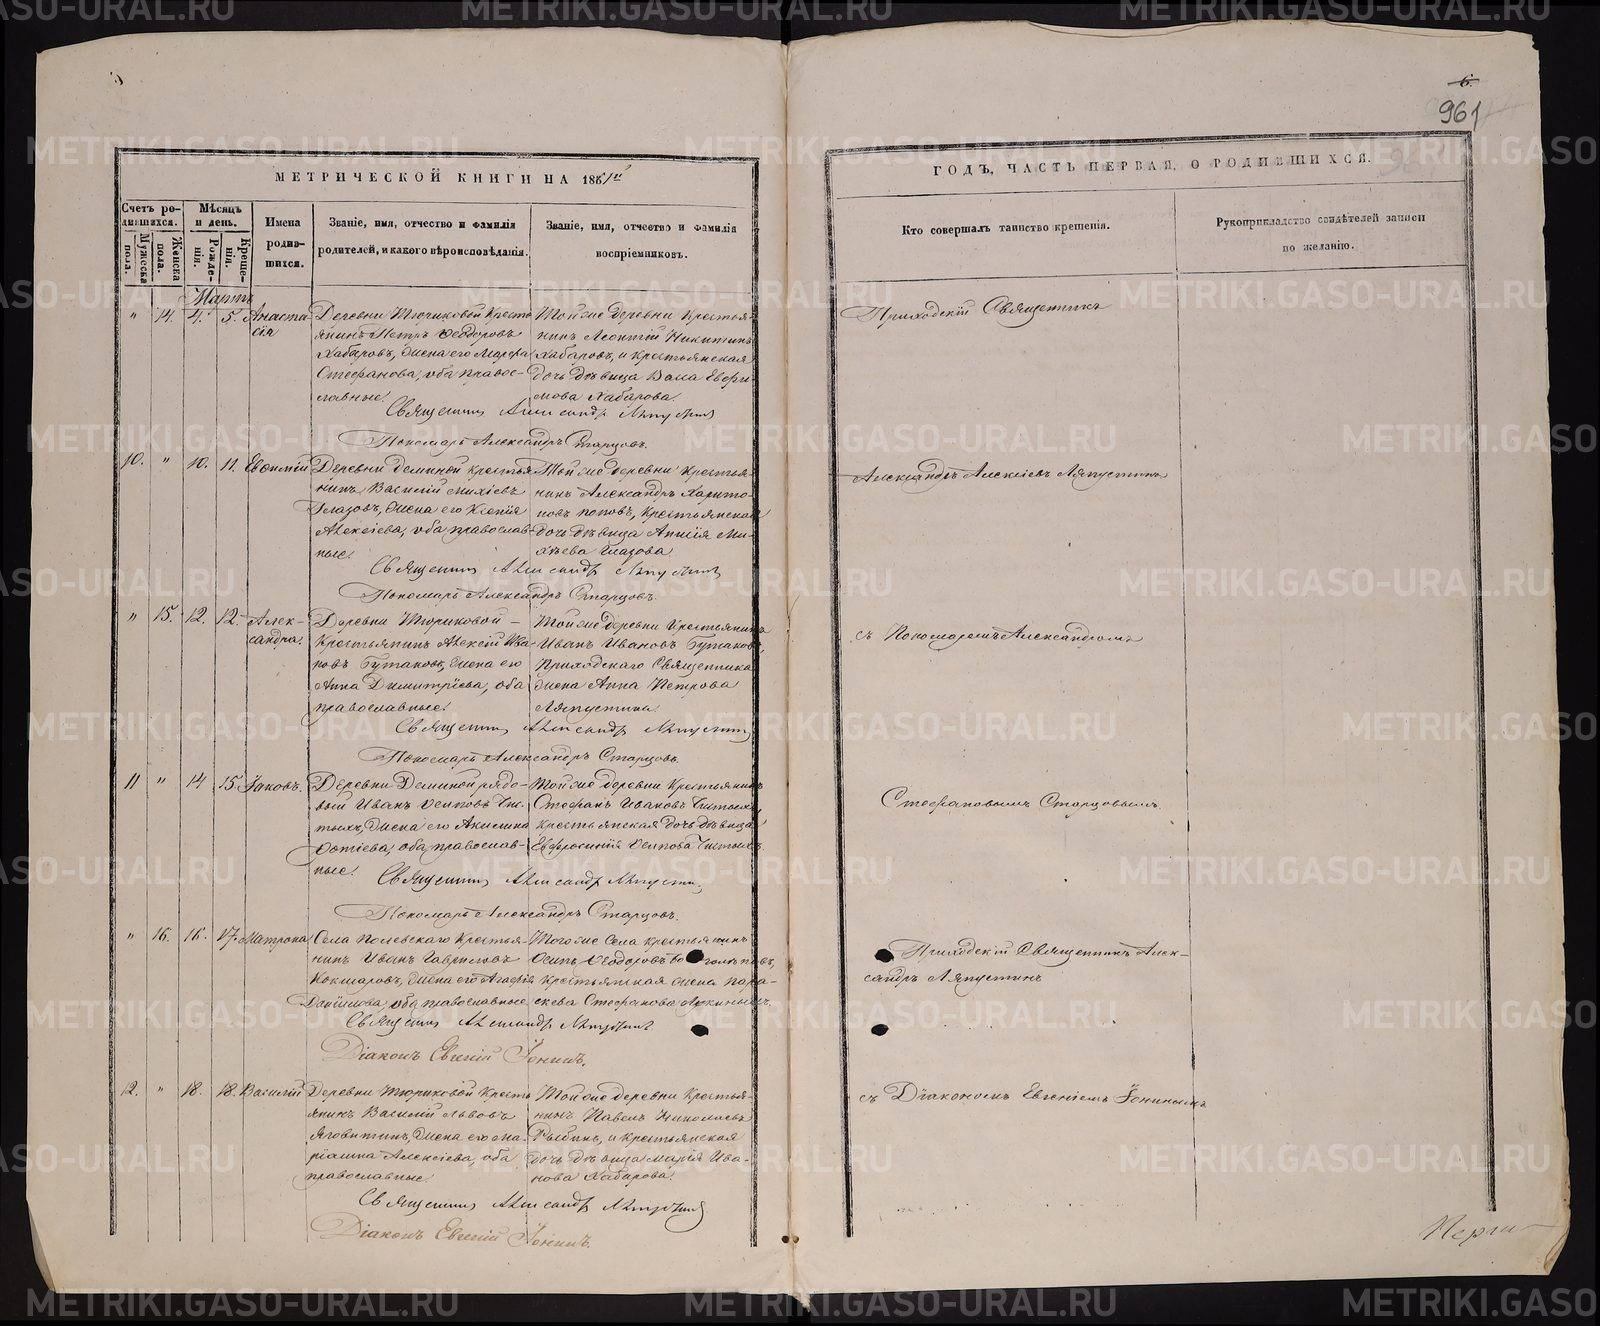 6.
961
МЕТРИЧЕСКОЙ КНИГИ НА 1861й
ГОДЪ, ЧАСТЬ ПЕРВАЯ, О РОДИВШИХСЯ.
Счетъ родившихся.
Мужеска пола.
Женска пола.
Мѣсяцъ и день.
Рожденія.
Крещенія.
Имена родившихся.
Званіе, имя, отчество и фамилія родителей, и какого вѣроисповѣданія.
Званіе, имя, отчество и фамилія воспріемниковъ.
Кто совершалъ таинство крещенія.
Рукоприкладство свидѣтелей записи по желанію.
Мартъ
" 14. 4. 5. Анастасія
Деревни Тюриковой Крестьянинъ Петръ Ѳеодоровъ
Хабаровъ, жена его Марфа
Стефанова, оба православные.
Той же деревни Крестьянинъ Леонтій Никитинъ
Хабаровъ, и крестьянская
дочь дѣвица Васса Евфимова Хабарова.
Приходскій Священникъ
Священникъ Александръ Ляпустинъ
Пономарь Александръ Старцовъ.
10. " 10. 11. Евѳимій
Деревни Деминой крестьянинъ Василій Михіевъ
Глазовъ, жена его Ксенія
Алексіева, оба православные.
Той же деревни Крестьянинъ Александръ Харитоновъ Поповъ, Крестьянская
дочь дѣвица Михѣева Глазова
Александръ Алексіевъ Ляпустинъ
Священникъ Александръ Ляпустинъ
Пономарь Александръ Старцовъ.
" 15. 12. 12. Александра.
Деревни Тюриковой
Крестьянинъ Алексій Ивановъ Бутаковъ, жена его
Анна Димитріева, оба
православные.
Той же деревни Крестьянинъ
Иванъ Ивановъ Бутаковъ,
Приходскаго Священника
жена Анна Петрова
Ляпустина.
съ Пономаремъ Александромъ
Священникъ Александръ Ляпустинъ
Пономарь Александръ Старцовъ.
11 " 14 15. Іаковъ.
Деревни Деминой рядовый Иванъ Осиповъ Чистыхъ, жена его Акилина
Фотіева, оба православные.
Той же деревни Крестьянинъ
Стефанъ Ивановъ Чистыхъ,
крестьянская дочь дѣвица
Евфросинія Осипова Чистыхъ.
Стефановымъ Старцовымъ.
Священникъ Александръ Ляпустинъ
Пономарь Александръ Старцовъ.
" 16. 16. 17. Матрона
Села Полевскаго Крестьянинъ Иванъ Гавриловъ
Кокшаровъ, жена его Агафія
Даніилова оба православные
Того же Села крестьянинъ
Осипъ Ѳеодоровъ
Крестьянская жена Параскева Стефанова
Приходскій Священникъ Александръ Ляпустинъ
Священникъ Александръ Ляпустинъ
Діаконъ Евгеній Іонинъ.
12. " 18. 18. Василій
Деревни Тюриковой Крестьянинъ Василій Львовъ
Яговитинъ, жена его Маріамна Алексіева, оба
православные.
Той же деревни Крестьянинъ Павелъ Николаевъ
Рыбинъ, и крестьянская
дочь дѣвица Марія Иванова Хабарова.
съ Діакономъ Евгеніемъ Іонинымъ
Священникъ Александръ Ляпустинъ
Діаконъ Евгеній Іонинъ.
METRIKI.GASO-URAL.RU